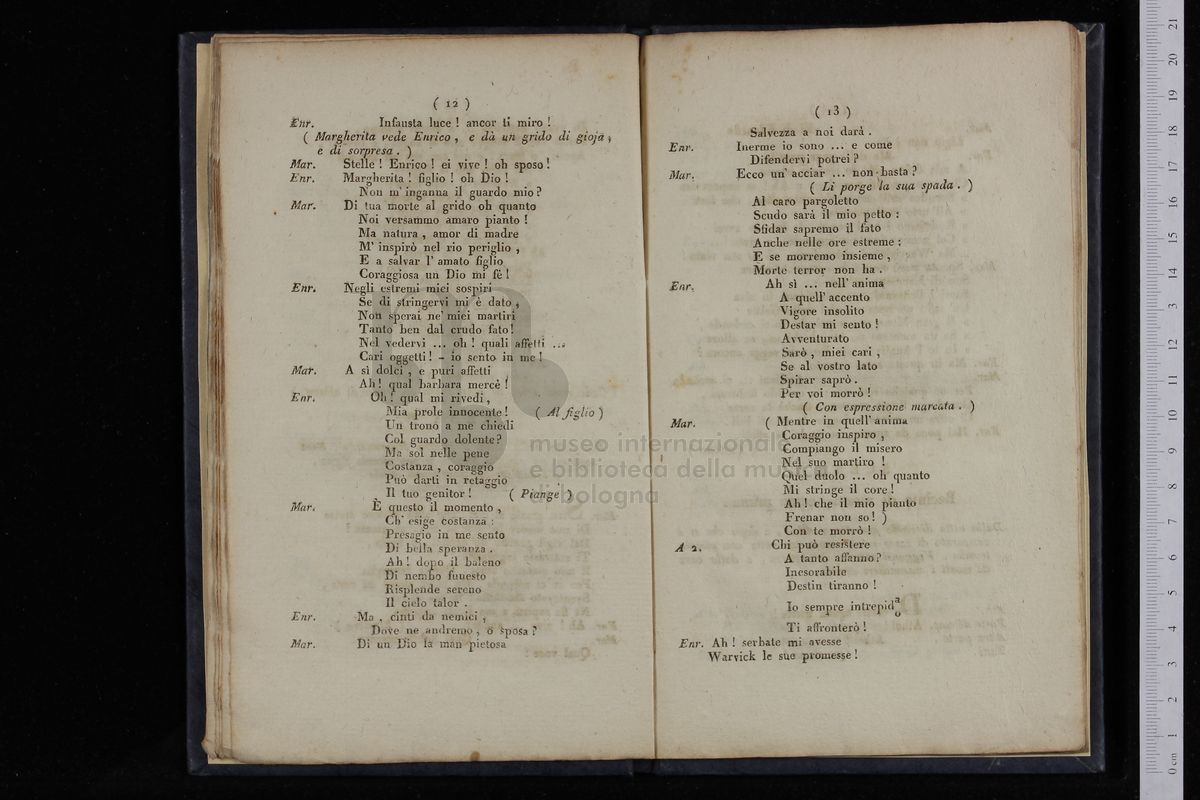 ( 12 )
Enr. Infausta luce ! ancor ti miro !
( Margherita vede Enrico , e dà un grido di gioja ,
e di sorpresa . )
Mar. Stelle ! Enrico ! ei vive ! oh sposo !
Enr. Margherita ! figlio ! oh Dio !
Non m' inganna il guardo mio ?
Mar. Di tua morte al grido oh quanto
Noi versammo amaro pianto !
Ma natura , amor di madre
M' inspirò nel rio periglio ,
E a salvar l' amato figlio
Coraggiosa un Dio mi fè !
Enr. Negli estremi miei sospiri
Se di stringervi mi è dato ,
Non sperai ne' miei martiri
Tanto ben dal crudo fato !
Nel vedervi ... oh ! quali affetti ...
Cari oggetti ! – io sento in me !
Mar. A sì dolci , e puri affetti
Ah ! qual barbara mercè !
Enr. Oh ! qual mi rivedi ,
Mia prole innocente ! ( Al figlio )
Un trono a me chiedi
Col guardo dolente ?
Ma sol nelle pene
Costanza , coraggio
Può darti in retaggio
Il tuo genitor ! ( Piange )
Mar. È questo il momento ,
Ch' esige costanza :
Presagio in me sento
Di bella speranza .
Ah ! dopo il baleno
Di nembo funesto
Risplende sereno
Il cielo talor .
Enr. Ma , cinti da nemici ,
Dove ne andremo , o sposa ?
Mar. Di un Dio la man pietosa
( 13 )
Salvezza a noi darà .
Enr. Inerme io sono ... e come
Difendervi potrei ?
Mar. Ecco un' acciar ... non basta ?
( Li porge la sua spada . )
Al caro pargoletto
Scudo sarà il mio petto :
Sfidar sapremo il fato
Anche nelle ore estreme :
E se morremo insieme ,
Morte terror non ha .
Enr. Ah sì ... nell' anima
A quell' accento
Vigore insolito
Destar mi sento !
Avventurato
Sarò , miei cari ,
Se al vostro lato
Spirar saprò .
Per voi morrò !
( Con espressione marcata . )
Mar. ( Mentre in quell' anima
Coraggio inspiro ,
Compiango il misero
Nel suo martiro !
Quel duolo ... oh quanto
Mi stringe il core !
Ah ! che il mio pianto
Frenar non so ! )
Con te morrò !
A 2. Chi può resistere
A tanto affanno ?
Inesorabile
Destin tiranno !
Io sempre intrepid a o
Ti affronterò !
Enr. Ah ! serbate mi avesse
Warvick le sue promesse !
museo internazionale
e biblioteca della mu
di bologna
0 cm 1 2 3 4 5 6 7 8 9 10 11 12 13 14 15 16 17 18 19 20 21